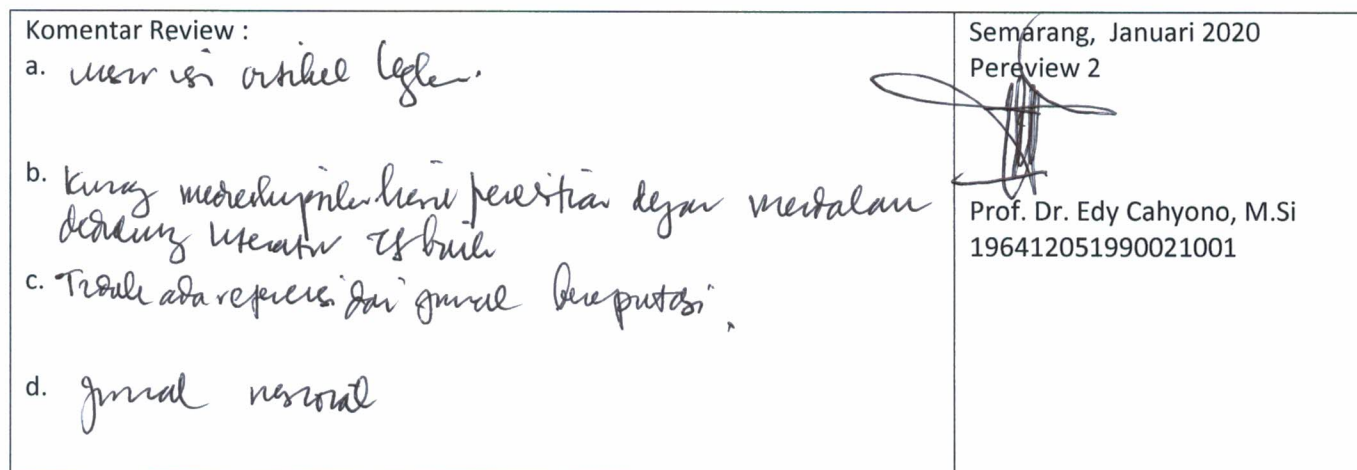 Komentar Review :
a. isi artikel
b. Kurang hasil penelitian dengan mendalam
literatur
c. Tidak ada referensi dari jurnal bereputasi.
d. Jurnal nasional
Semarang, Januari 2020
Pereview 2
Prof. Dr. Edy Cahyono, M.Si
196412051990021001